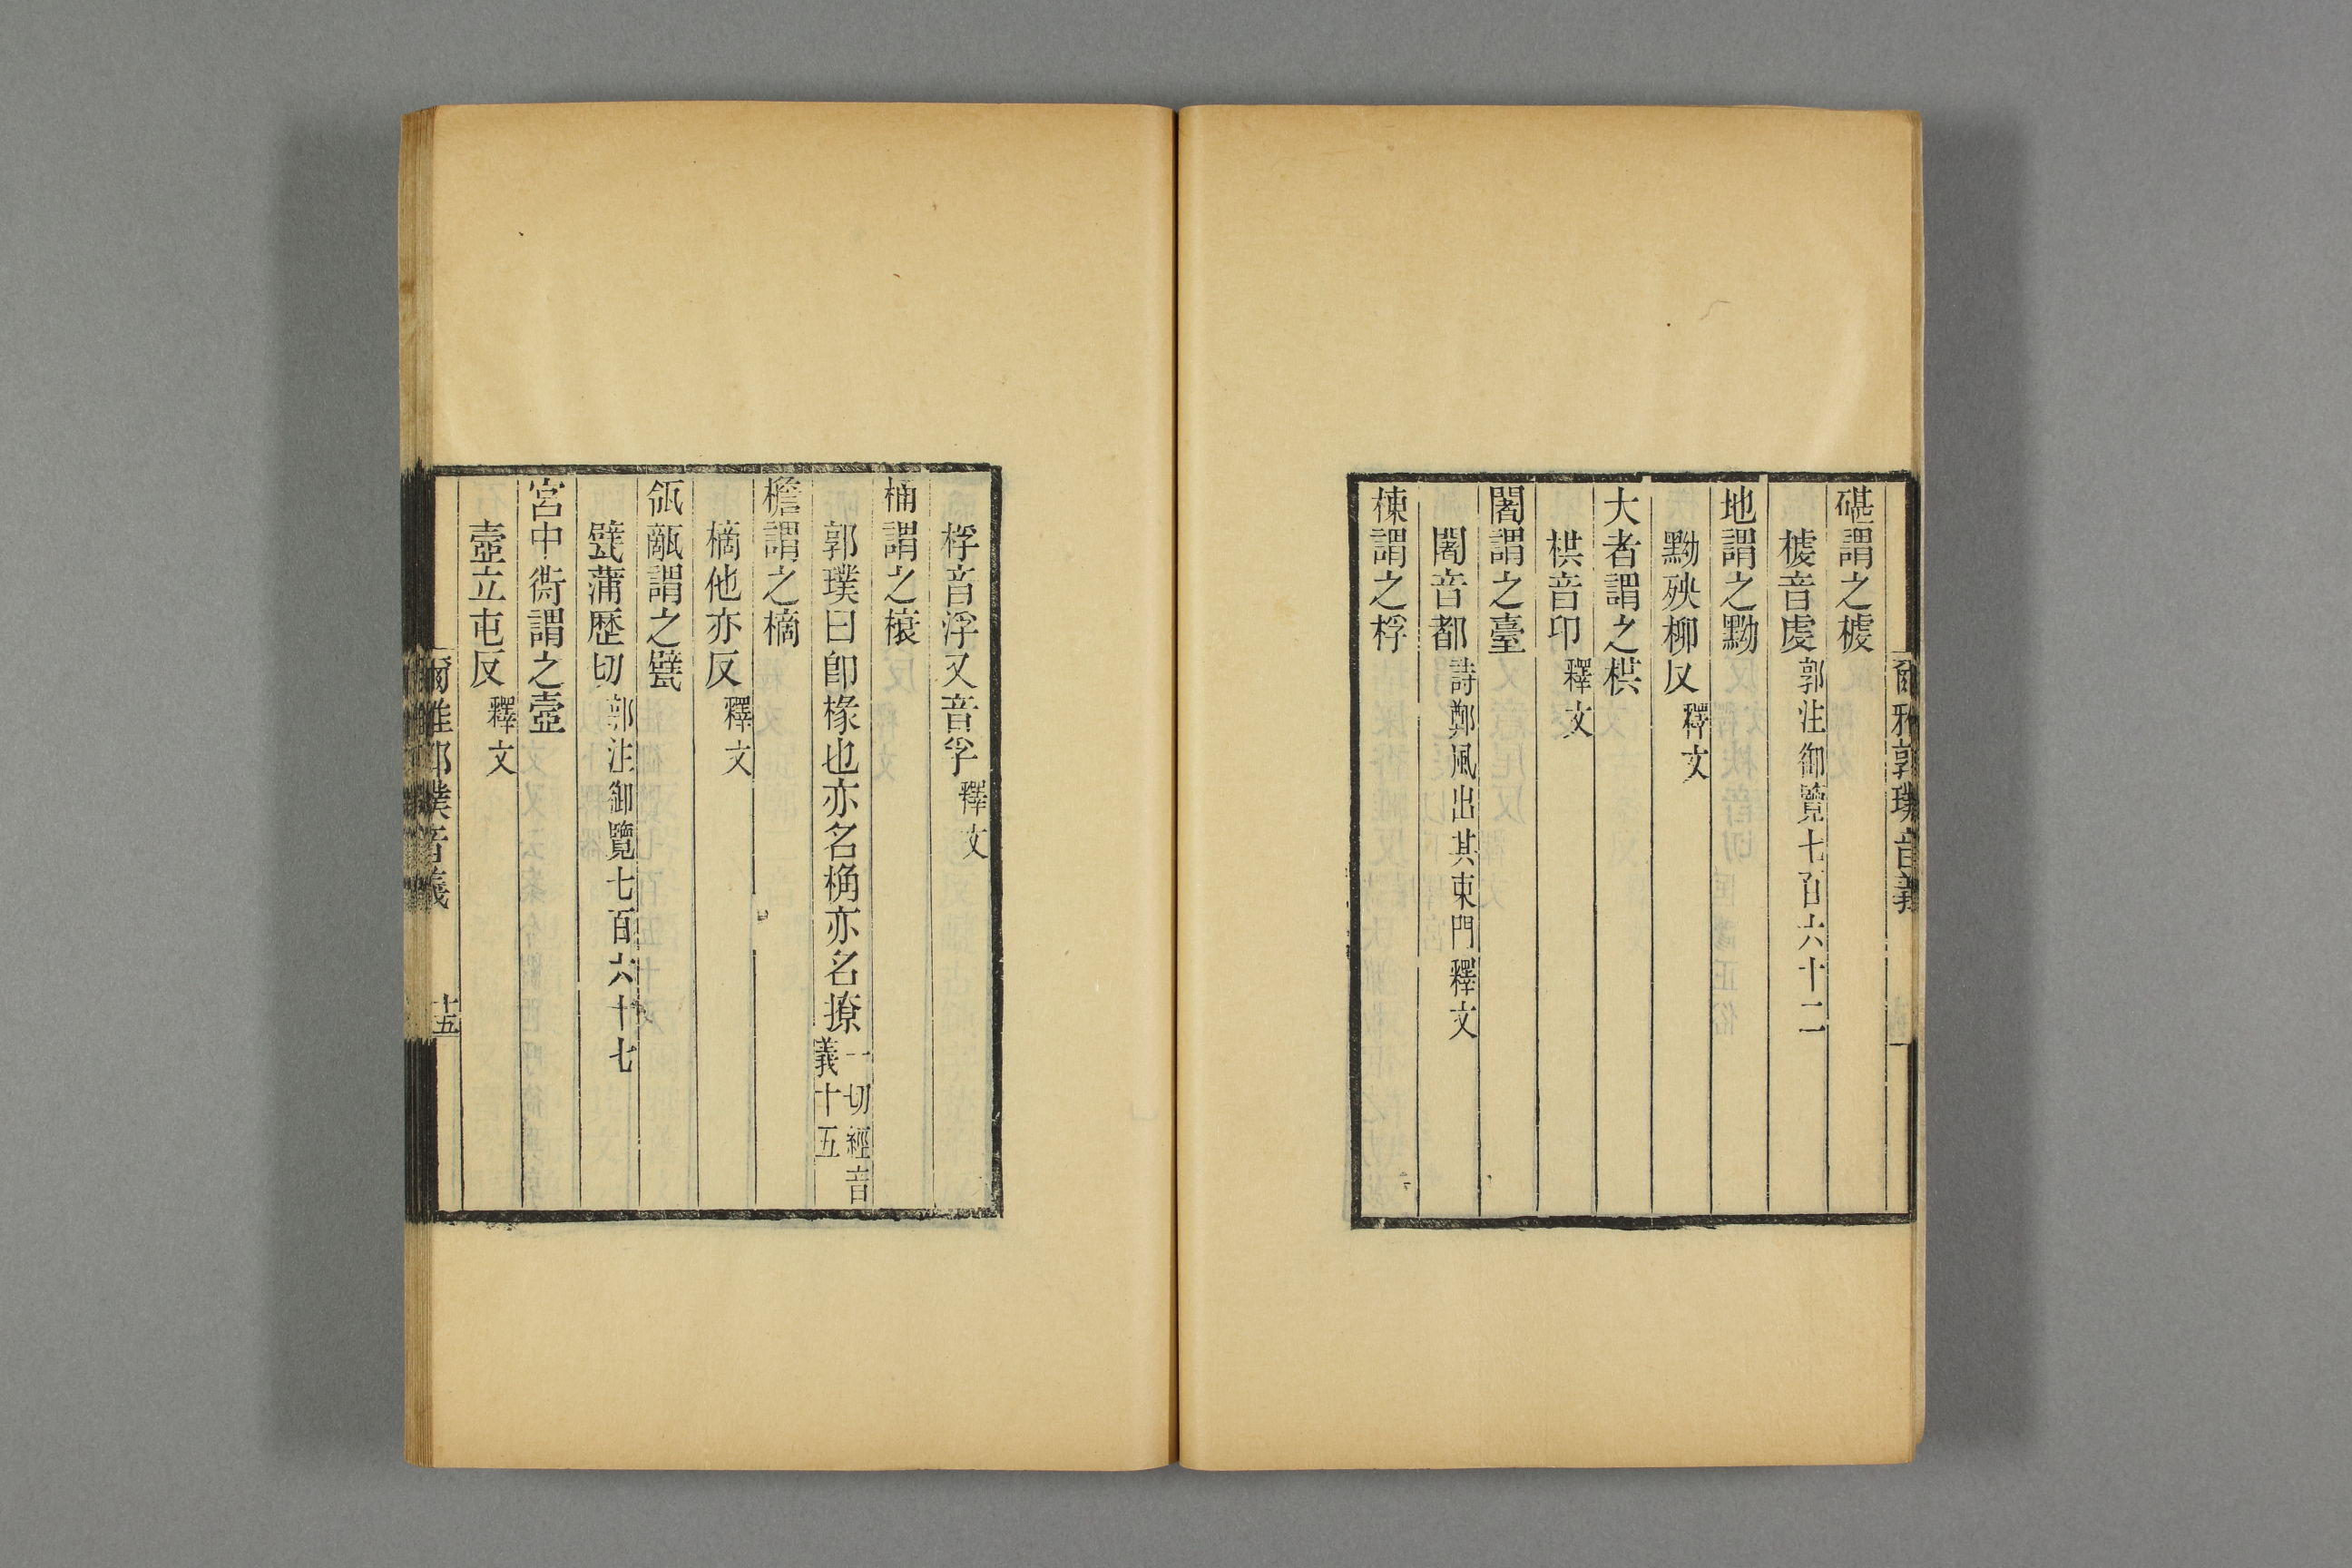 爾雅郭璞音義
碪謂之榩
榩音虔郭注御覽七百六十二
地謂之黝
黝殃柳反釋文
大者謂之栱
栱音邛釋文
闍謂之臺
闍音都詩鄭風出其東門釋文
棟謂之桴
桴音浮又音孚釋文
桷謂之榱
郭璞曰卽椽也亦名桷亦名撩一切經音
義十五
檐謂之樀
樀他亦反釋文
瓴甋謂之甓
甓蒲歷切郭注御覽七百六十七
宮中衖謂之壼
壼立屯反釋文
爾雅郭璞音義
十五